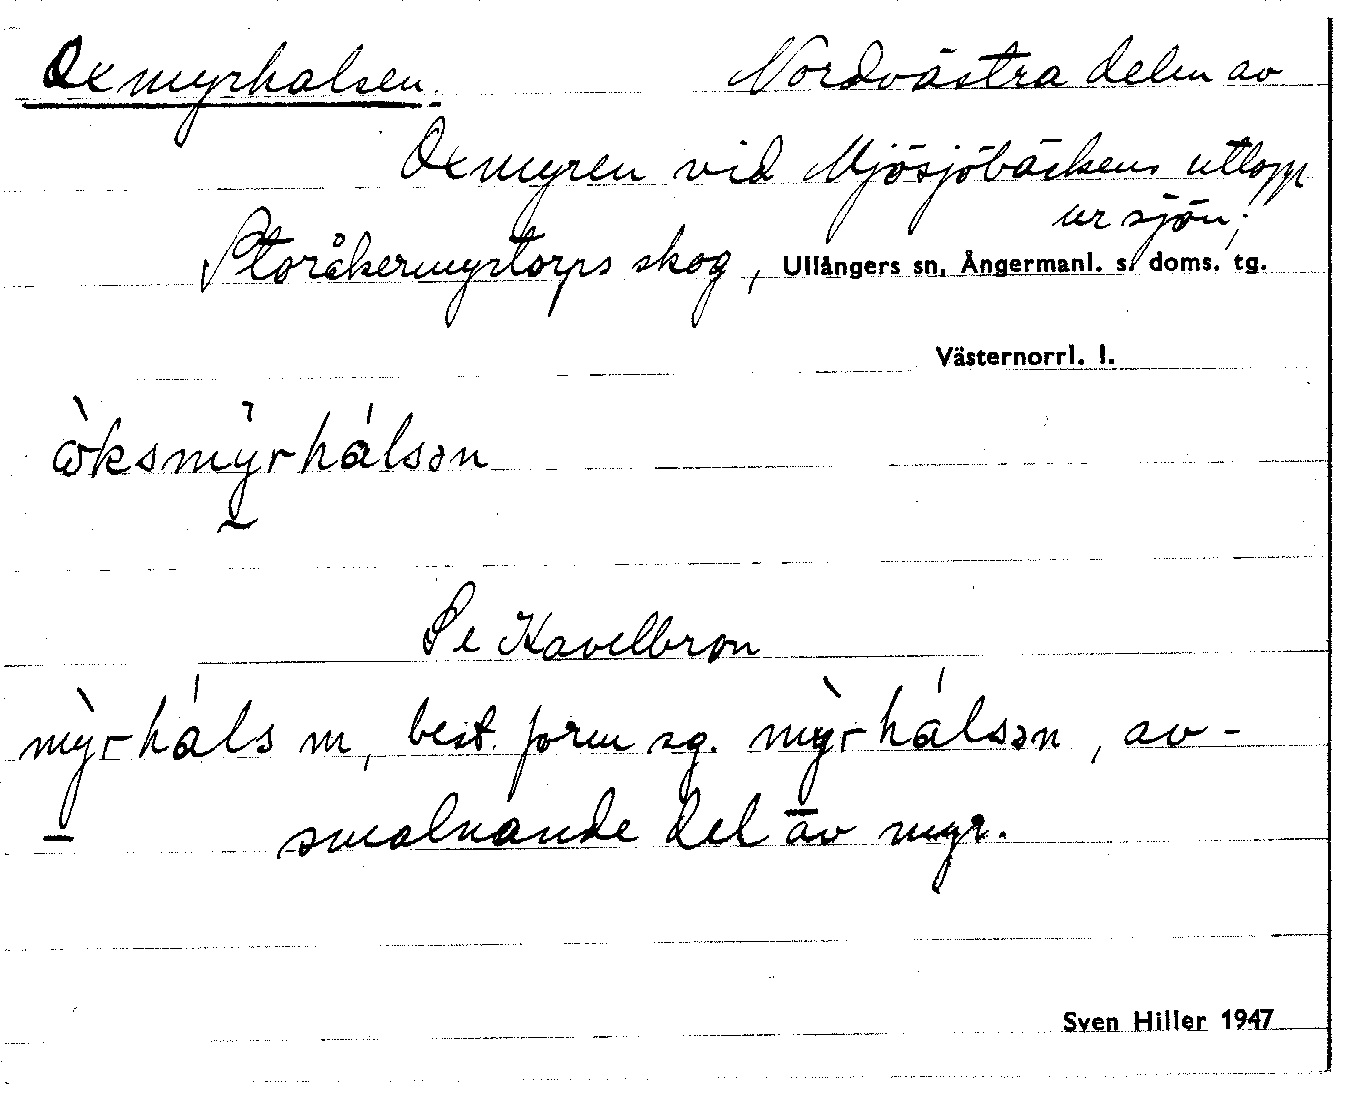 Oxmyrhalsen. Nordvästra delen av
Oxmyren vid Mjösjöbäckens utlopp
ur sjön;
Storåkermyrtorps skog, Ullångers sn, Ångermanl. s. doms. tg.
Västernorrl. l.
Se Kavelbron
mỳrháls m, best. form sg. mỳrhálsən, av-
smalnande del av myr.
Sven Hiller 1947